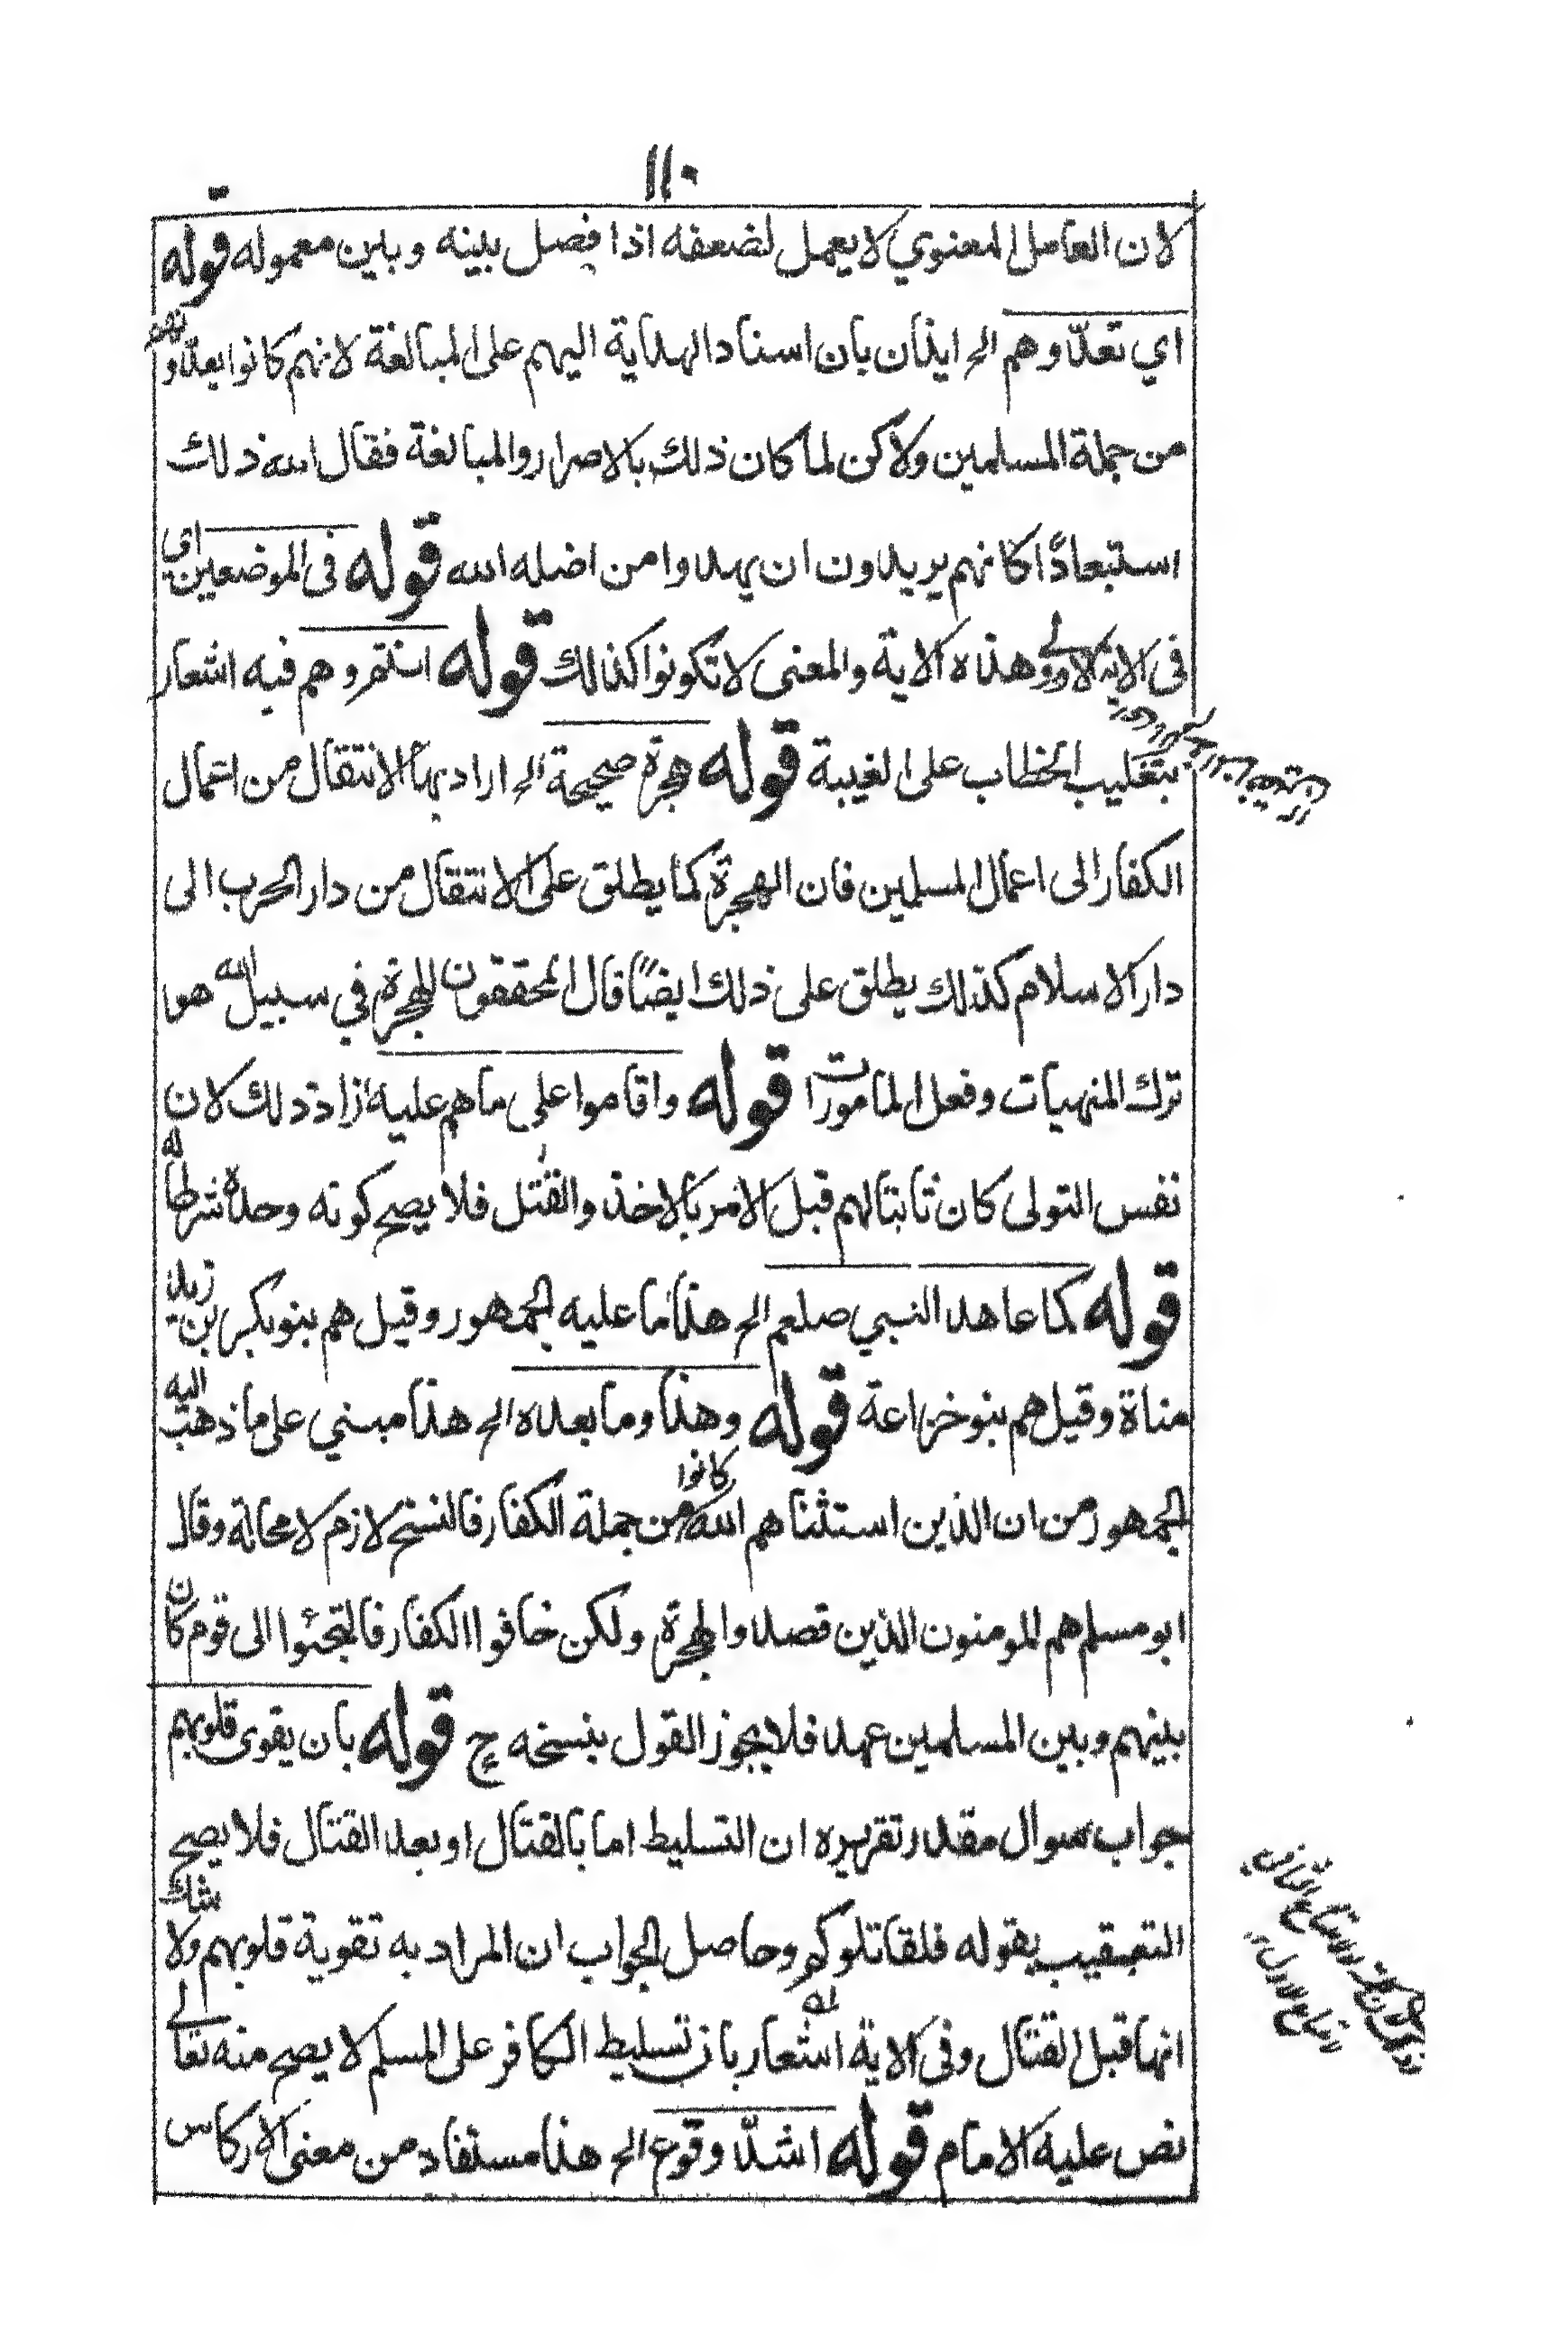 ١١٠
لان العامل المعنوي لا يعمل لضعفه اذا فصل بينه وبين معموله قوله
اي تعدّوهم الخ ايذان بان اسناد الهداية اليهم على المبالغة لانهم كانوا يعدّونهم
من جملة المسلمين ولاكن لما كان ذلك بالاصرار والمبالغة فقال الله ذلك
استبعادًا كانهم يريدون ان يهدوا من اضله الله قوله في الموضعين اي
في الاية الاولى وهذه الاية والمعنى لا تكونوا كذالك قوله انتم وهم فيه اشعار
بتغليب الخطاب على الغيبة قوله هجرة صحيحة الخ اراد بها الانتقال من اعمال
الكفار الى اعمال المسلمين فان الهجرة كما يطلق على الانتقال من دار الحرب الى
دار الاسلام كذلك يطلق على ذلك ايضًا قال المحققون الهجرة في سبيل الله هوا
ترك المنهيات وفعل المامورات قوله واقاموا على ما هم عليه ازاد ذلك لان
نفس التولى كان ثابتا لهم قبل الامر بالاخذ والقتل فلا يصح كونه وحده شرطا له
قوله كما عاهد النبي صلعم الخ هذا ما عليه الجمهور وقيل هم بنو بكر بن زيد
مناة وقيل هم بنو خزاعة قوله وهذا وما بعده الخ هذا مبني على ما ذهب اليه
الجمهور من ان الذين استثناهم الله كانوا من جملة الكفار فالنسخ لازم لا محالة وقال
ابو مسلم هم المومنون الذين قصدوا الهجرة ولكن خافوا الكفار فالتجئوا الى قوم كان
بينهم وبين المسلمين عهد فلا يجوز القول بنسخه ح قوله بان يقوى قلوبهم
جواب سوال مقدر تقريره ان التسليط اما بالقتال او بعد القتال فلا يصح
التعقيب بقوله فلقاتلوكم وحاصل الجواب ان المراد به تقوية قلوبهم ولا شك
انها قبل القتال وفي الاية اشعار بان تسليط الكافر على المسلم لا يصح منه تعالى
نص عليه الامام قوله اشدّ وقوع الخ هذا مستفاد من معنى الاركاس